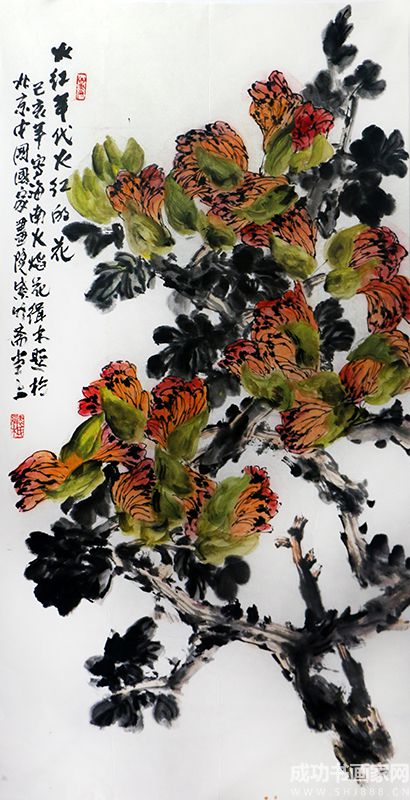 火红年代火红的花
己亥年写海南火焰花得木题于
北京中国国家画院
成功书画家网
WWW.SHJ888.CN